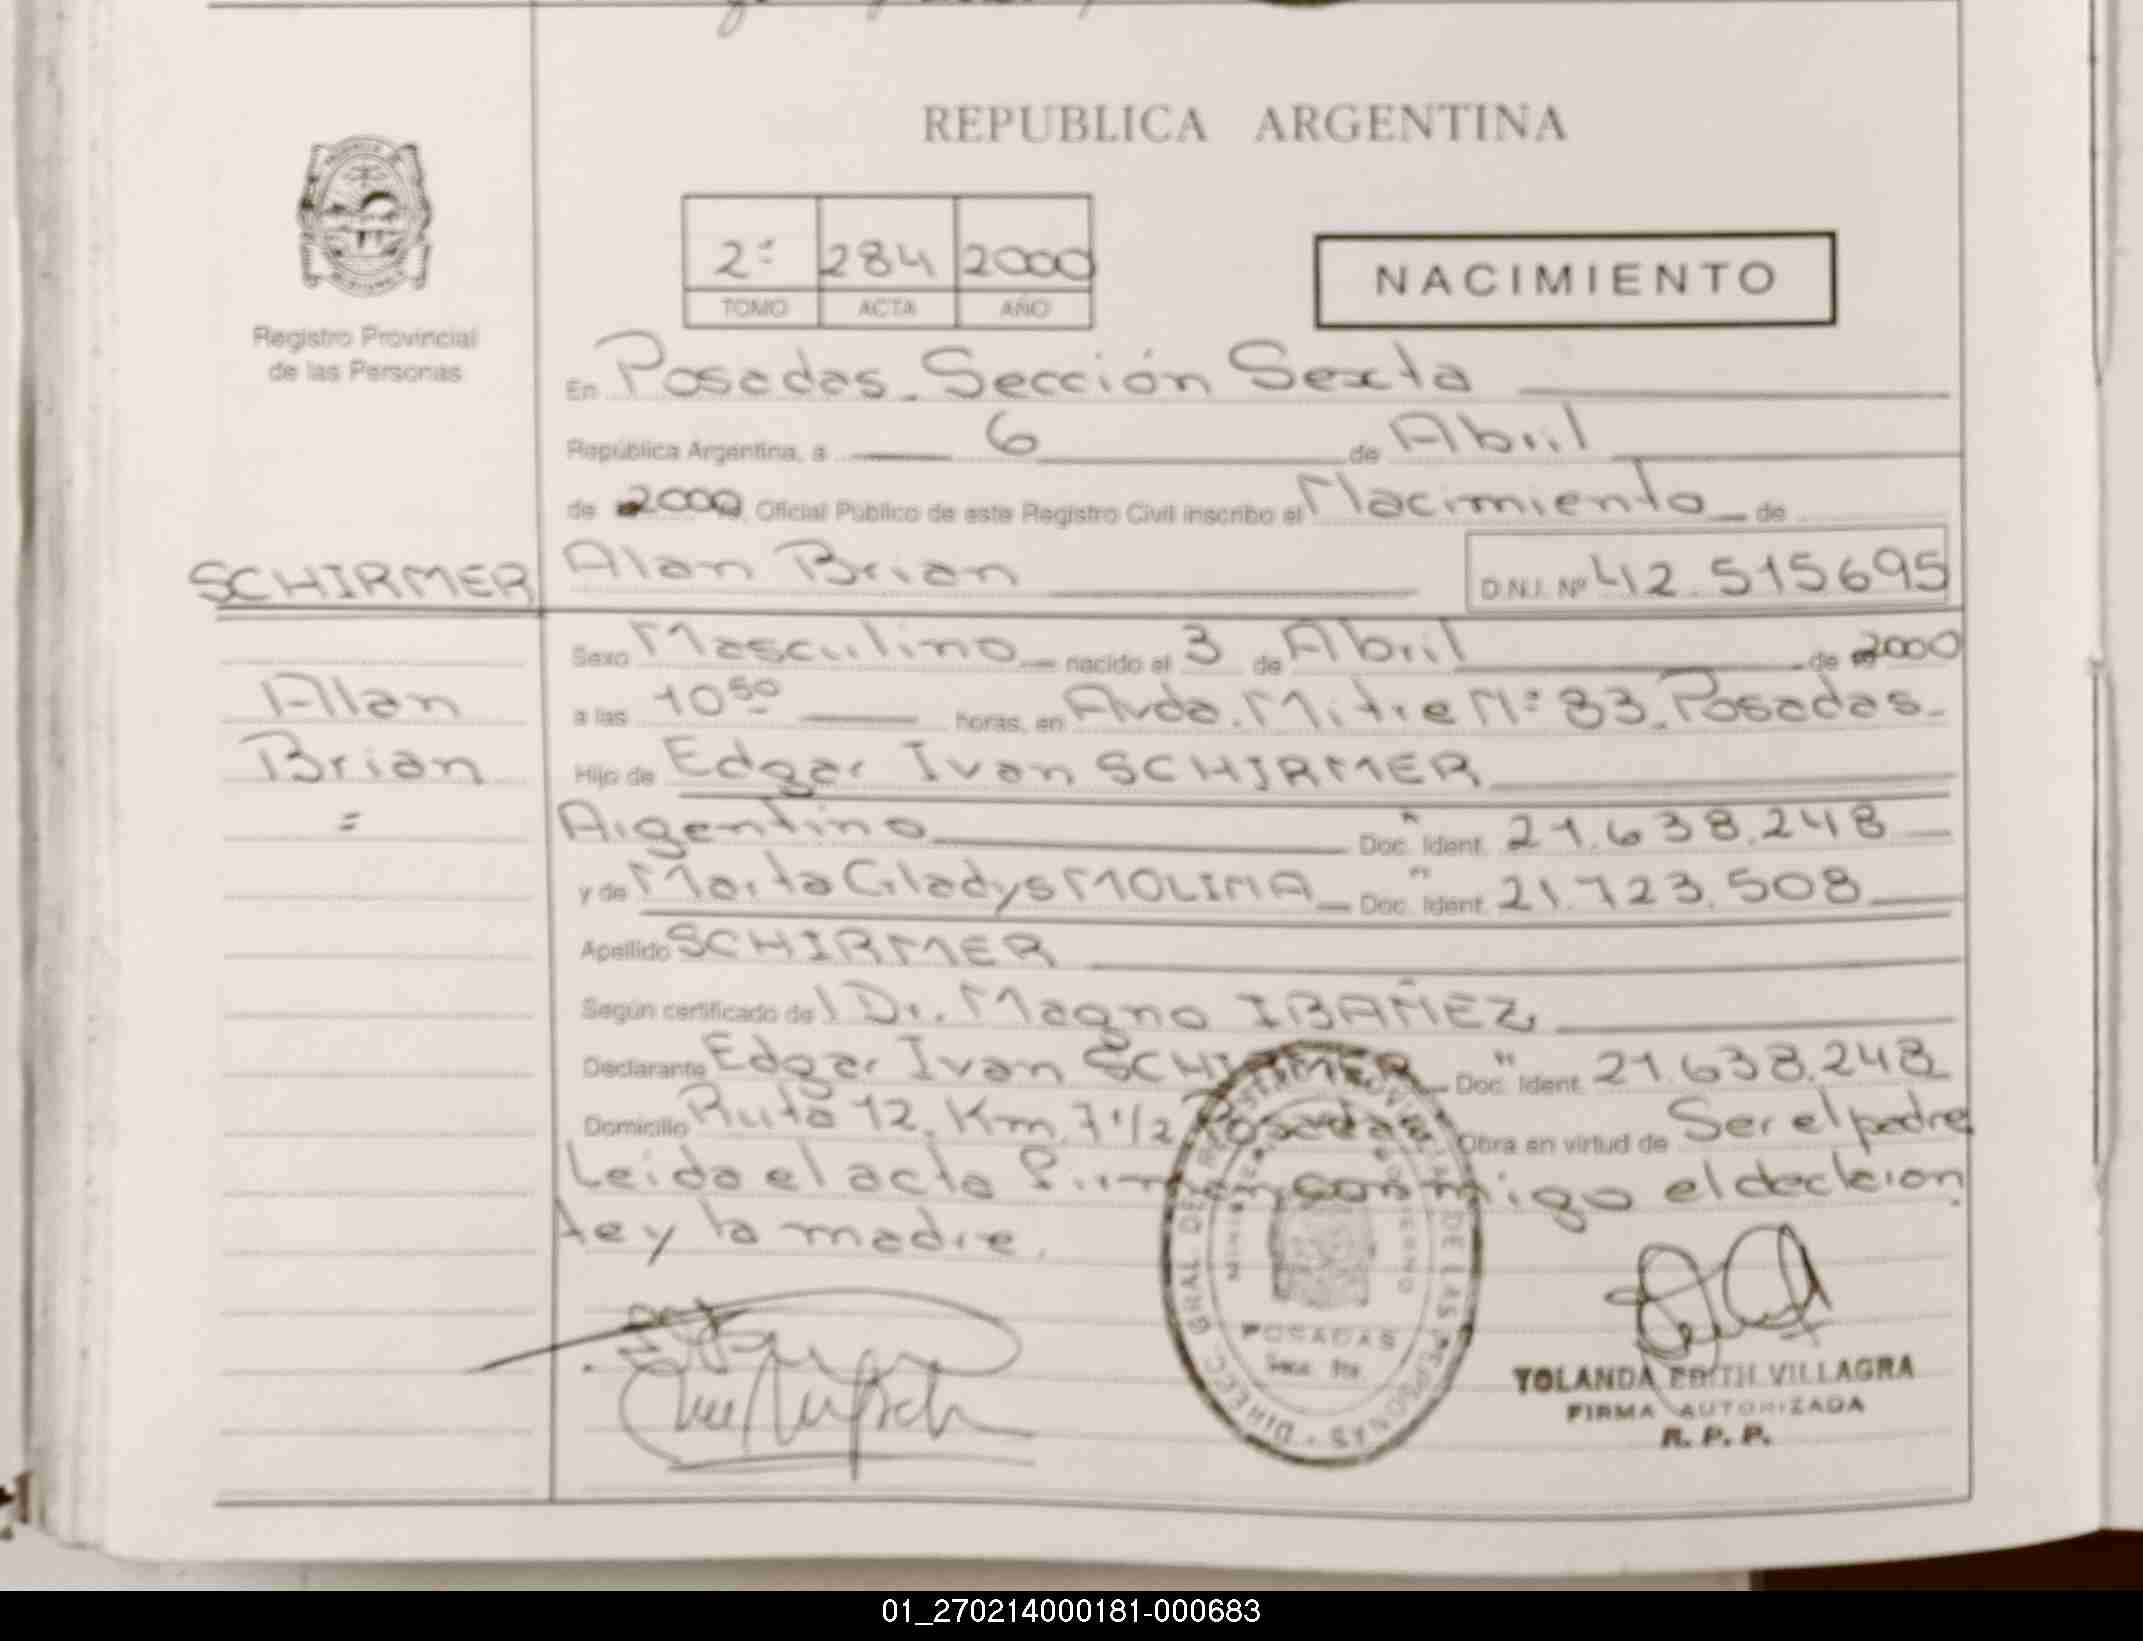 REPUBLICA ARGENTINA
2º 284 2000
TOMO ACTA AÑO
NACIMIENTO
Registro Provincial
de las Personas
En Posadas. Sección Sexta
República Argentina, a 6 de Abril
de 2000, Oficial Público de este Registro Civil inscribo el Nacimiento de
SCHIRMER Alan Brian D.N.I. Nº 42.515695
Sexo Masculino nacido el 3 de Abril de 2000
Alan
a las 10 50 horas, en Avda. Mitre Nº 83. Posadas.
Brian
Hijo de Edgar Ivan SCHIRMER
=
Argentino Doc. Ident. 21.638.248
y de Marta Gladys MOLINA Doc. Ident. 21.723.508
Apellido SCHIRMER
Según certificado del Dr. Magno IBAÑEZ
Declarante Edgar Ivan SCHIRMER Doc. Ident. 21.638.248
Domicilio Ruta 12. Km. 7 1/2 Posadas Obra en virtud de Ser el padre
Leida el acta Firman conmigo el declaran
te y la madre.
DIRECC. GRAL DEL REGISTRO PROVINCIAL DE LAS PERSONAS
MINISTERIO DE GOBIERNO
POSADAS
Secc. 6ta.
YOLANDA EDITH VILLAGRA
FIRMA AUTORIZADA
R. P. P.
01_270214000181-000683